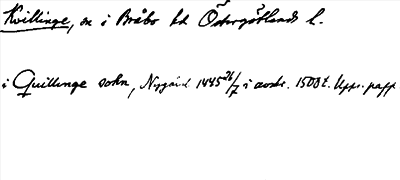 Kvillinge, sn i Bråbo hd Östergötlands l.
i Quillinge sokn, Nygård 1445 26/7 i avskr. 1500 t. Upps. papp